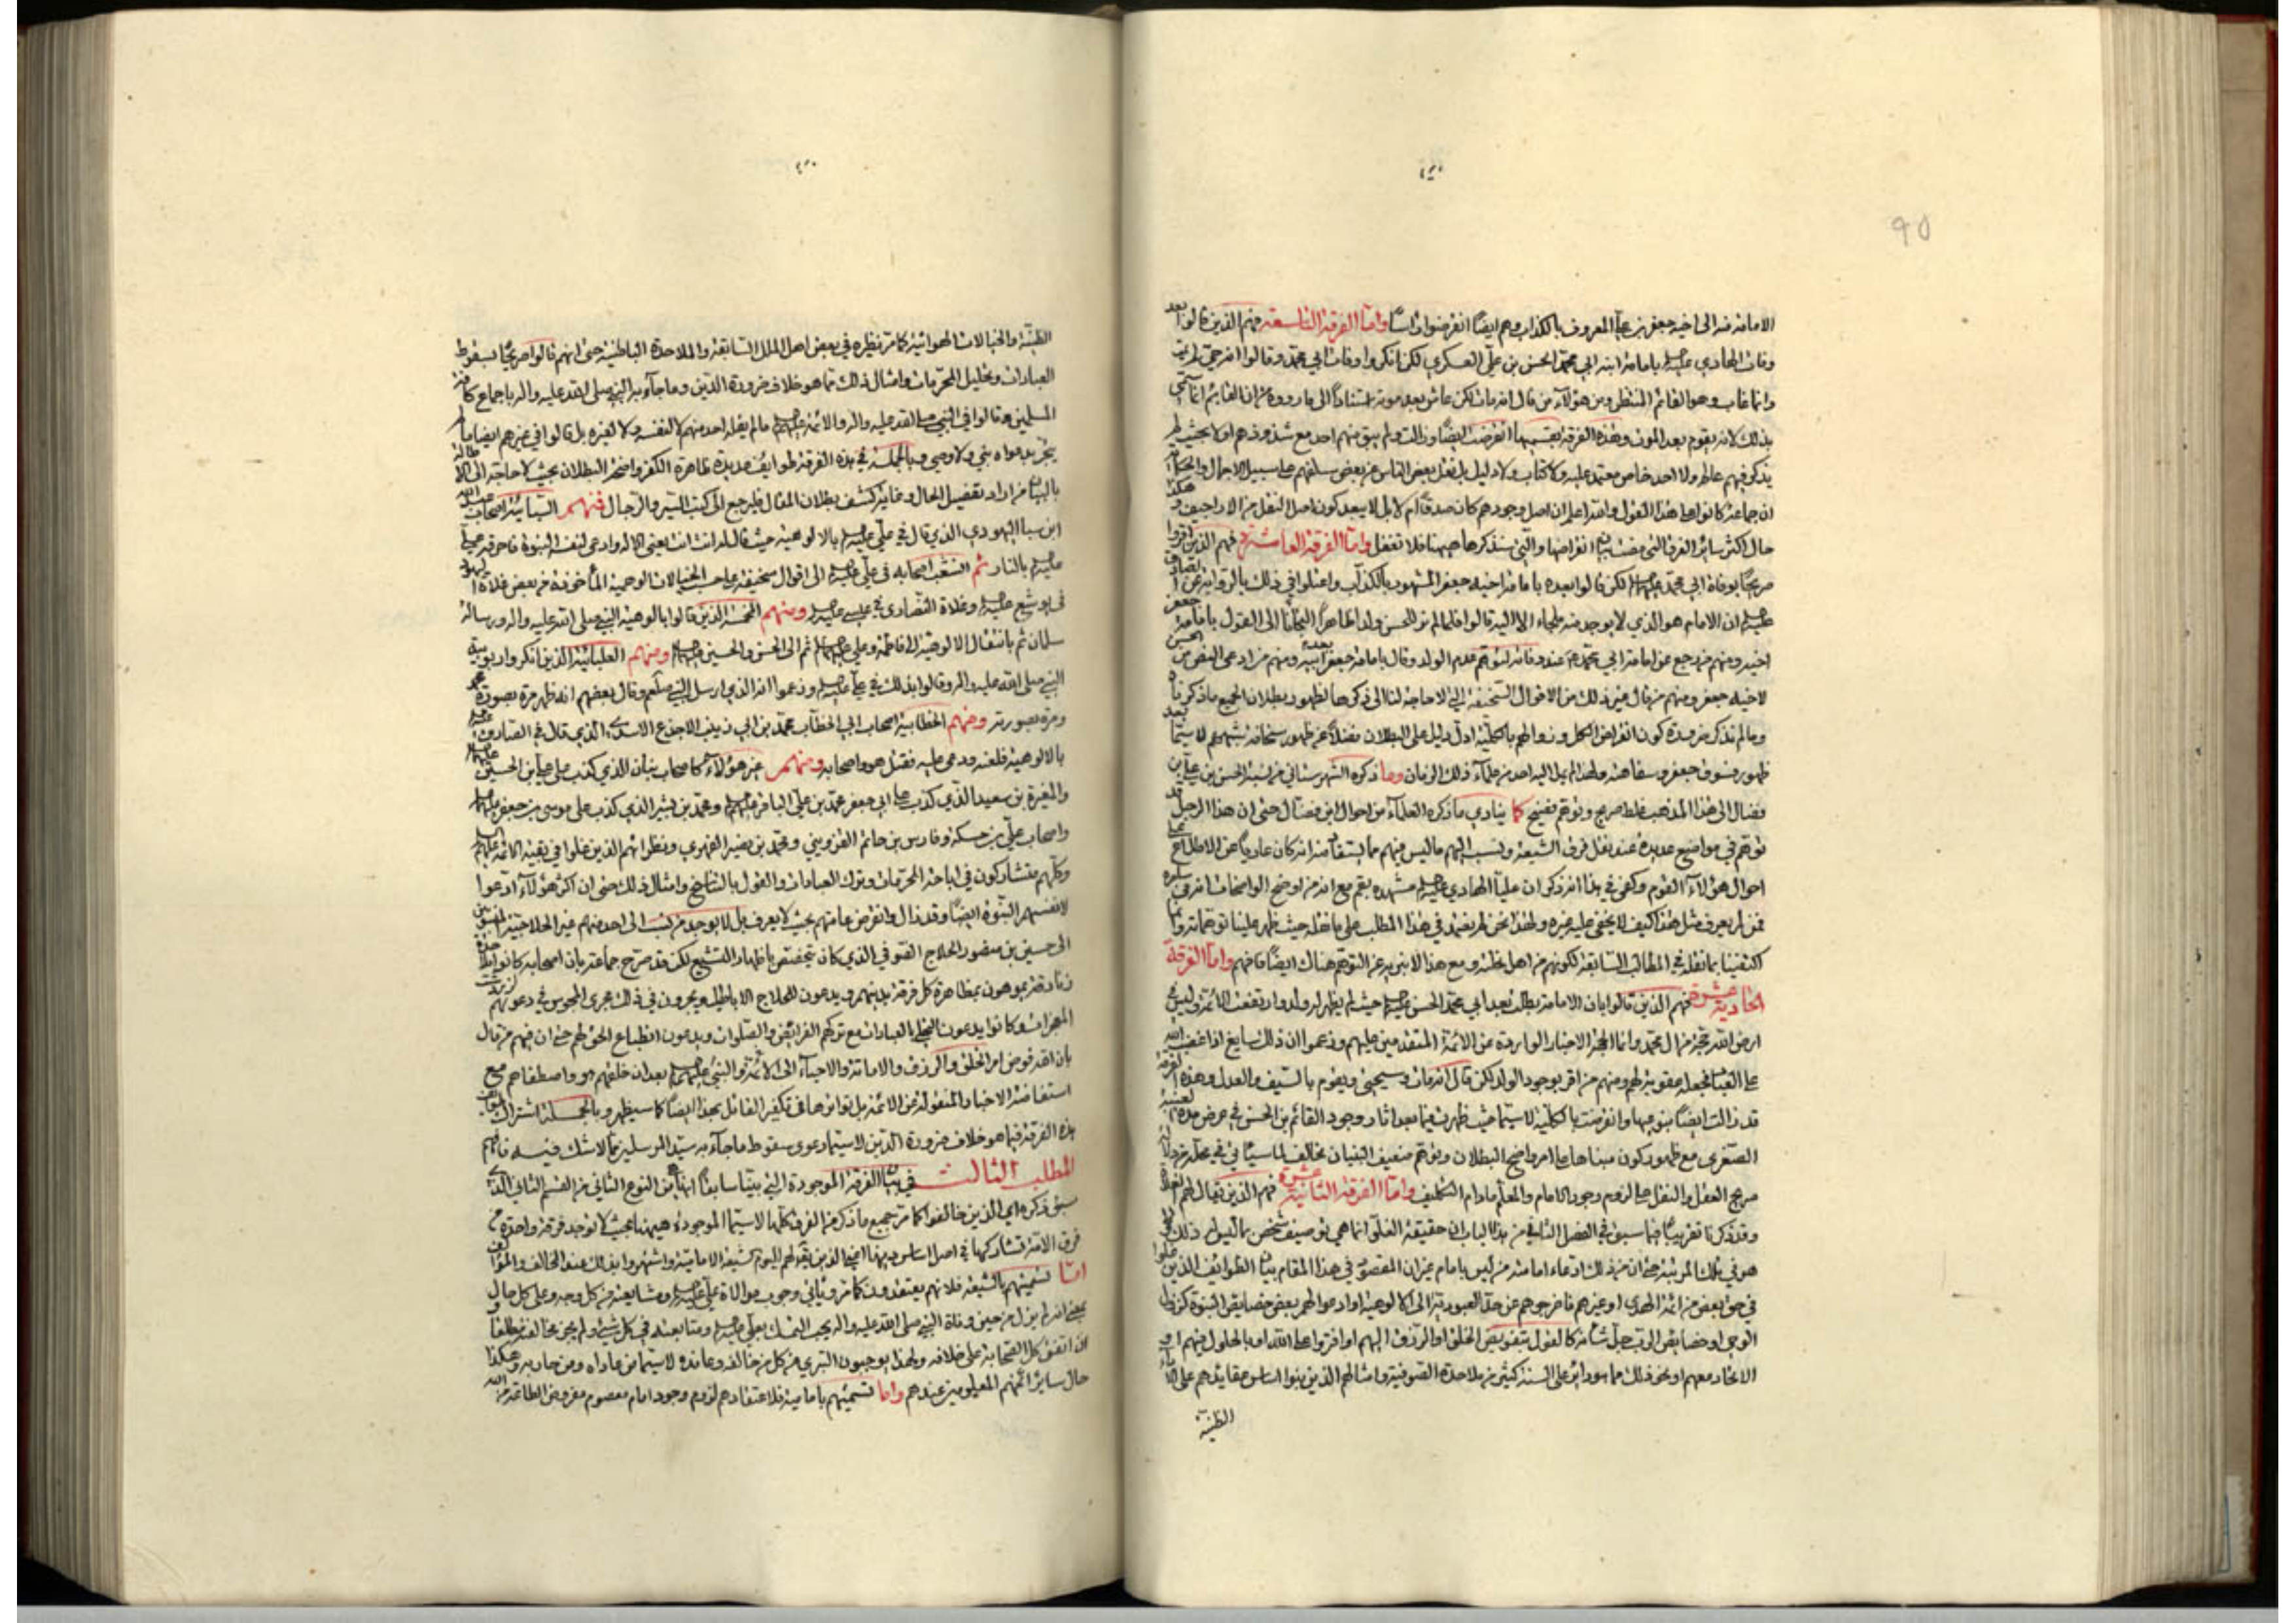 ٩٥
الامامة منه الى اخيه جعفر بن علي المعروف بالكذاب وهم ايضا انقرضوا واما الفرقة التاسعة فمنهم الذين قالوا بعد
وفات الهادي بامامة ابنه ابي محمد الحسن بن علي العسكري لكن انكروا وفات ابي محمد وقالوا انه حي لم يمت
وانما غاب وهو القائم المنتظر ومن هؤلاء من قال انه مات لكن عاش بعد موته استنادا الى ما رووه ان القائم انما سمي
بذلك لانه يقوم بعد الموت وهذه الفرقة بقسميها انقرضت ايضا وزالت ولم يبق منهم احد مع شذوذهم اولا بحيث لم
يذكر فيهم عالم ولا احد خاص معتمد عليه ولا كتاب ولا دليل بل نقل بعض الناس عن بعض سلفهم على سبيل الاجمال والحكاية
ان جماعة كانوا على هذا القول والله اعلم ان اصل وجودهم كان صدقا ام لا بل لا يبعد كون اصل النقل من الاراجيف و هكذا
حال اكثر سائر الفرق التي مضت بيان انقراضها والتي سنذكرها هيهنا فلا تغفل واما الفرقة العاشرة فهم الذين اقروا
صريحا بوفاة ابي محمد لكن قالوا بعده بامامة اخيه جعفر المشهور بالكذاب واعتلوا في ذلك بالرواية عن الصادق
ان الامام هو الذي لا يوجد منه ملجاء الا اليه قالوا فلما لم نر للحسن ولدا ظاهرا التجانا الى القول بامامة جعفر
اخيه ومنهم من رجع عن امامة ابي محمد عند وفاته لتوهم عدم الولد وقال بامامة جعفر بعد ابيه ومنهم من ادعى النص من الحسن
لاخيه جعفر ومنهم من قال غير ذلك من الاقوال السخيفة التي لا حاجة لنا الى ذكرها لظهور بطلان الجميع بما ذكرناه
وما لم نذكر من كون انقراض الكل وزوالهم بالكلية ادل دليل على البطلان فضلا عن ظهور سخافة شبههم لا سيما بعد
ظهور فسوق جعفر وسفاهته ولهذا لم يمل اليه احد من علماء ذلك الزمان وما ذكره الشهرستاني من نسبة الحسن بن علي بن
فضال الى هذا المذهب غلط صريح وتوهم فضيح كما ينادي ما ذكره العلماء من احوال ابن فضال حتى ان هذا الرجل قد
توهم في مواضع عديدة عند نقل فرق الشيعة ونسب اليهم ما ليس فيهم مما يستفاد منه انه كان عاريا عن الاطلاع على
احوال هؤلاء القوم وكفى في هذا انه ذكر ان عليا الهادي مشهده بقم مع انه من اوضح الواضحات انه في سامره
فمن لم يعرف مثل هذا كيف لا يخفى عليه غيره ولهذا نحن لم نعتمد في هذا المطلب على ما نقله حيث ظهر علينا توهماته وانما
اكتفينا بما نقله في المطالب السابقة لكونهم من اهل نحلته ومع هذا الا يبرء عن التوهم هناك ايضا فافهم واما الفرقة
الحادية عشرة فهم الذين قالوا بان الامامة بطلت بعد ابي محمد الحسن حيث لم يظهر له ولد وارتفعت الائمة وليس في
ارض الله حجة من ال محمد وانما الحجة الاخبار الواردة عن الائمة المتقدمين عليهم وزعموا ان ذلك سايغ اذا غضب الله
على العباد فجعله عقوبة لهم ومنهم من اقر بوجود الولد لكن قال انه مات وسيجيئ ويقوم بالسيف والعدل وهذه الفرقة
قد زالت ايضا بنوعيها وانقرضت بالكلية لا سيما حيث ظهرت فيما بعد اثار وجود القائم بن الحسن في عرض مدة الغيبة
الصغرى مع ظهور كون مبناها على امر واضح البطلان وتوهم ضعيف البنيان مخالف لما سياتي في محله من دلالة
صريح العقل والنقل على لزوم وجود الامام والمعلم مادام التكليف واما الفرقة الثانية عشرة فهم الذين يقال لهم الغلاة
وقد ذكرنا تقريبا فيما سبق في الفصل الثاني من هذا الباب ان حقيقة الغلو انما هي توصيف شخص بما ليس له
هو في تلك المرتبة حتى ان من ذلك ادعاء امامة من ليس بامام غير ان المقصود في هذا المقام بيان الطوائف الذين غلوا
في حق بعض من ائمة الهدى او غيرهم فاخرجوهم عن حد العبودية الى الالوهية او ادعوا لهم بعض خصايص النبوة كنزول
الوحي او خصايص الرب جل شانه كالقول بتفويض الخلق او الرزق اليهم او افتروا على الله او بالحلول فيهم او
الاتحاد معهم او نحو ذلك مما هو دائر على السنة كثير من ملاحدة الصوفية وامثالهم الذين بنوا اساس عقايدهم على
الظنية
الظنية والخيالات الهوائية كما مر نظيره في بعض اهل الملل السابقة والملاحدة الباطنية حتى انهم قالوا صريحا بسقوط
العبادات وتحليل المحرمات وامثال ذلك مما هو خلاف ضرورة الدين وما جاء به النبي صلى الله عليه واله باجماع كافة
المسلمين وقالوا في النبي صلى الله عليه واله والائمة ما لم يقله احد منهم لا لنفسه ولا لغيره بل قالوا في غيرهم ايضا ما لم
يجر بدعواه نبي ولا وصي وبالجملة في هذه الفرقة طوايف عديدة ظاهرة الكفر واضحة البطلان بحيث لا حاجة الى
بالبيان من اراد تفصيل الحال وغاية كشف بطلان المقال فليرجع الى كتب السير والرجال فمنهم السبائية اصحاب عبد الله
ابن سبا اليهودي الذي قال في علي بالالوهية حيث قال له انت انت يعني الاله وادعى لنفسه النبوة فاحرقه علي
بالنار ثم انشعب اصحابه في علي الى اقوال سخيفة على حسب الخيالات الوهمية المأخوذة من بعض غلاة اليهود
في يوشع وغلاة النصارى في عيسى ومنهم المخمسة الذين قالوا بالوهية النبي صلى الله عليه واله ورسالة
سلمان ثم بانتقال الالوهية الى فاطمة وعلي ثم الى الحسن والحسين ومنهم العليائية الذين انكروا ربوبية
النبي صلى الله عليه واله وقالوا بذلك في علي وزعموا انه الذي ارسل النبي صلعم وقال بعضهم انه ظهر مرة بصورة محمد
ومرة بصورته ومنهم الخطابية اصحاب ابي الخطاب محمد بن ابي زينب الاجدع الاسدي الذي قال في الصادق
بالالوهية فلعنه ودعى عليه فقتل هو واصحابه ومنهم غير هؤلاء كاصحاب بنان الذي كذب على علي بن الحسين
والمغيرة بن سعيد الذي كذب على ابي جعفر محمد بن علي الباقر ومحمد بن بشير الذي كذب على موسى بن جعفر
واصحاب علي بن حسكة وفارس بن حاتم القزويني ومحمد بن نصير الفهري ونظرائهم الذين غلوا في بقية الائمة
وكلهم متشاركون في اباحة المحرمات وترك العبادات والقول بالتناسخ وامثال ذلك حتى ان اكثر هؤلاء ادعوا
لانفسهم النبوة ايضا وقد زال وانقرض عامتهم بحيث لا يعرف بل لا يوجد من ينسب الى احد منهم غير الحلاجية المنسوبين
الى حسين بن منصور الحلاج الصوفي الذي كان يتخصص باظهار التشيع لكن قد صرح جماعة بان اصحابه كانوا
زنادقة يموهون بمظاهرة كل فرقة بدينهم ويدعون للحلاج الاباطيل ويجرون في ذلك مجرى المجوس في دعويهم لزردشت
المعجزات وكانوا يدعون التجلي بالعبادات مع تركهم الفرائض والصلوات ويدعون انطباع الحق لهم حتى ان فيهم من قال
بان الله فوض امر الخلق والرزق والاماتة والاحياء الى الائمة والنبي بعد ان خلقهم هو واصطفاهم مع
استفاضة الاخبار المنقولة عن الائمة بل تواترها في تكفير القائل بهذا ايضا كما سيظهر وبالجملة اشتراك
هذه الفرقة فيما هو خلاف ضرورة الدين لا سيما دعوى سقوط ما جاء به سيد المرسلين مما لا شك فيه فافهم
المطلب الثالث في بيان الفرقة الموجودة التي بينا سابقا انها من النوع الثاني من القسم الثاني الذي
سبق ذكره اي الذين خالفوا كما مر جميع ما ذكر من الفرق كلها لا سيما الموجودة هيهنا بحيث لا توجد فرقة واحدة من
فرق الامة تشاركها في اصل اساس دينها اعني الذين يقال لهم اليوم الشيعة الامامية واشتهروا بذلك عند المخالف والمؤالف
اما تسميتهم بالشيعة فلانهم يعتقدون كما مر ويأتي وجوب موالاة علي ومشايعته من كل وجه وعلى كل حال
بمعنى انه لم يزل من حين وفاة النبي صلى الله عليه واله يجب التمسك بعلي ومتابعته في كل شيئ ولم يجز مخالفته مطلقا و
ان اتفق كل الصحابة على خلافه ولهذا يوجبون التبري من كل من خالفه وعانده لا سيما من عاداه ومن حاربه وهكذا
حال ساير ائمتهم المعلومين عندهم واما تسميتهم بامامية فلاعتقادهم لزوم وجود امام معصوم مفروض الطاعة من الله